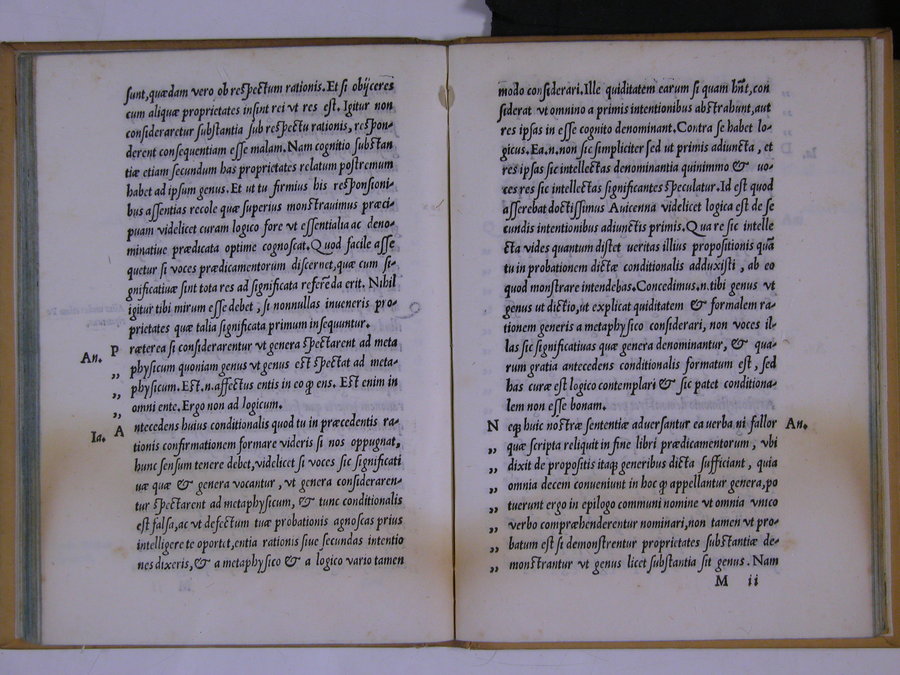 sunt,quædam vero ob respectum rationis.Et si obijceres
cum aliquæ proprietates insint rei vt res est. Igitur non
consideraretur substantia sub respectu rationis, respon-
derent consequentiam esse malam. Nam cognitio substan
tiæ etiam secundum has proprietates relatum postremum
habet ad ipsum genus. Et ut tu firmius his responsioni-
bus assentias recole quæ superius monstrauimus præci-
puam videlicet curam logico fore vt essentialia ac deno-
minatiue prædicata optime cognoscat. Quod facile asse
quetur si voces prædicamentorum discernet,quæ cum si-
gnificatiuæ sint tota res ad significata referēda erit. Nihil
igitur tibi mirum esse debet, si nonnullas inueneris pro-
prietates quæ talia significata primum insequuntur.
An. P ræterea si considerarentur vt genera spectarent ad meta
,, physicum quoniam genus vt genus est spectat ad meta-
,, physicum. Est.n.affectus entis in eo ꝙ ens. Est enim in
,, omni ente. Ergo non ad logicum.
Ia. A ntecedens huius conditionalis quod tu in præcedentis ra-
tionis confirmationem formare videris si nos oppugnat,
hunc sensum tenere debet,videlicet si voces sic significati
uæ quæ & genera vocantur, vt genera consideraren-
tur spectarent ad metaphysicum, & tunc conditionalis
est falsa,ac vt defectum tuæ probationis agnoscas prius
intelligere te oportet,entia rationis siue secundas intentio
nes dixeris,& a metaphysico & a logico vario tamen
modo considerari.Ille quiditatem earum si quam hñt,con
siderat vt omnino a primis intentionibus abstrahunt,aut
res ipsas in esse cognito denominant.Contra se habet lo-
gicus.Ea.n.non sic simpliciter sed ut primis adiuncta, et
res ipsas sic intellectas denominantia quinimmo & uo-
ces res sic intellectas significantes speculatur.Id est quod
asserebat doctissimus Auicenna videlicet logica est de se
cundis intentionibus adiunctis primis.Quare sic intelle
cta vides quantum distet ueritas illius propositionis quā
tu in probationem dictæ conditionalis adduxisti, ab eo
quod monstrare intendebas.Concedimus.n.tibi genus vt
genus ut dictio,ut explicat quiditatem & formalem ra-
tionem generis a metaphysico considerari, non voces il-
las sic significatiuas quæ genera denominantur, & qua-
rum gratia antecedens conditionalis formatum est, sed
has curæ est logico contemplari & sic patet conditiona-
lem non esse bonam.
N eqꝫ huic nostræ sententiæ aduersantur ea uerba ni fallor An.
,, quæ scripta reliquit in fine libri prædicamentorum, vbi
,, dixit de propositis itaqꝫ generibus dicta sufficiant, quia
,, omnia decem conueniunt in hoc ꝙ appellantur genera,po
,, tuerunt ergo in epilogo communi nomine vt omnia vnico
,, verbo compræhenderentur nominari,non tamen vt pro-
,, batum est si demonstrentur proprietates substantiæ de-
,, monstrantur vt genus licet substantia sit genus. Nam
M ii